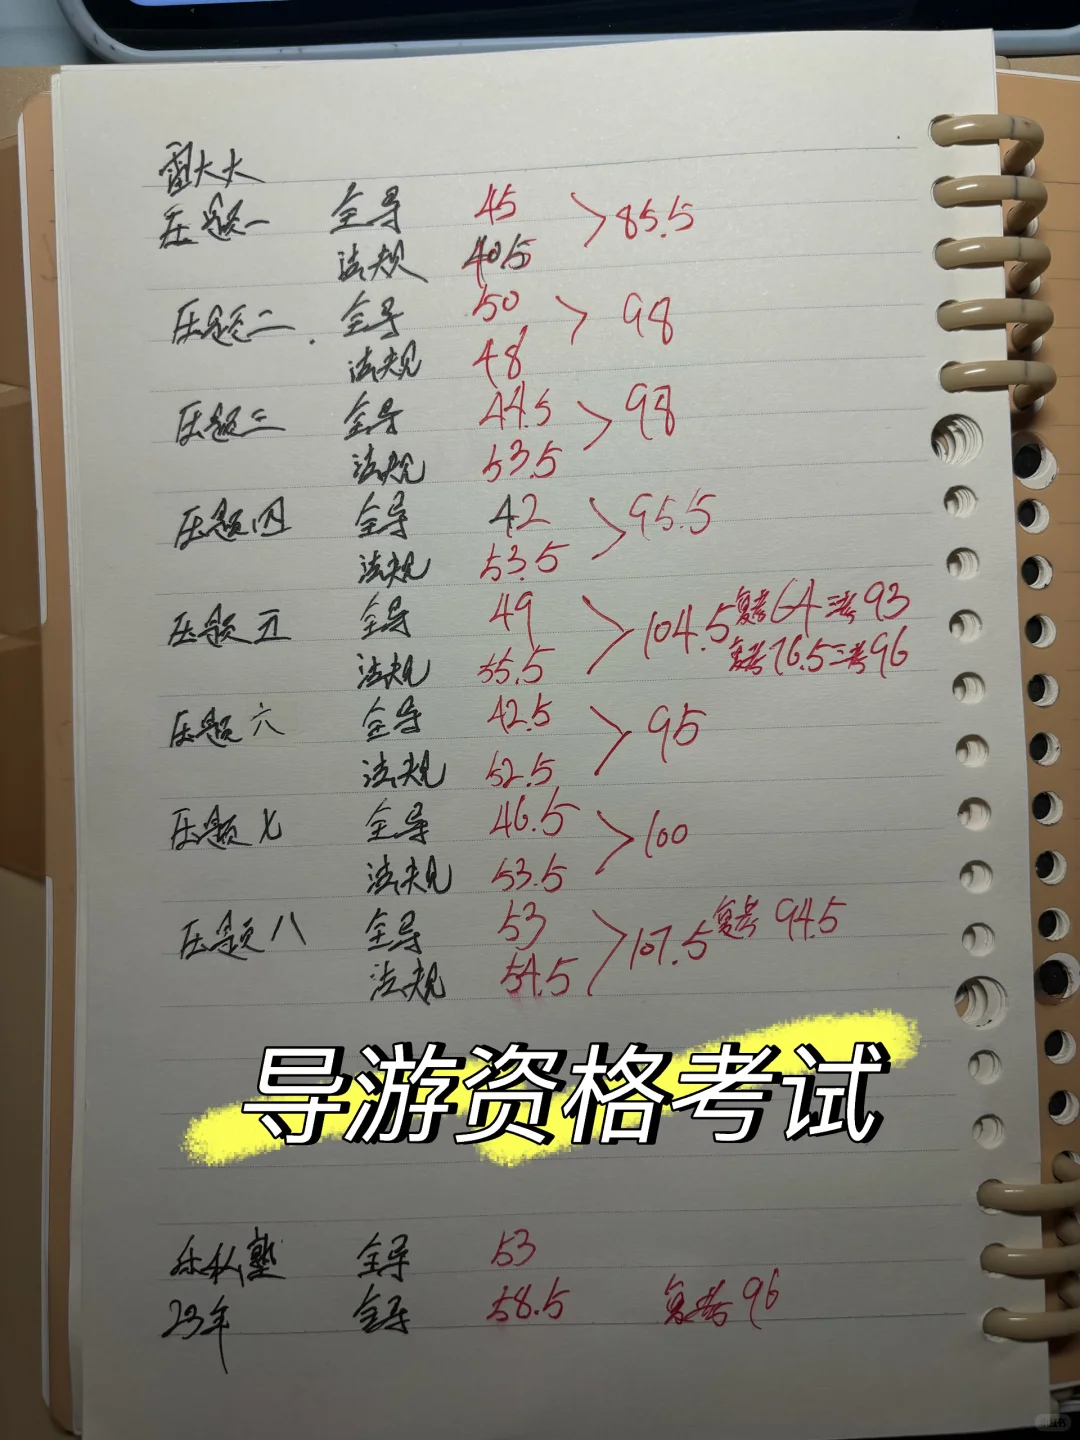 雷大大
压题一 全导 45 > 85.5
法规 40.5
压题二. 全导 50 > 98
法规 48
压题三 全导 44.5 > 98
法规 53.5
压题四 全导 42 > 95.5
法规 53.5
压题五 全导 49 > 104.5 复考64 三考93
法规 55.5 复考76.5 三考96
压题六 全导 42.5 > 95
法规 52.5
压题七 全导 46.5 > 100
法规 53.5
压题八 全导 53 > 107.5 复考 94.5
法规 54.5
导游资格考试
私塾 全导 53
23年 全导 58.5 复考96